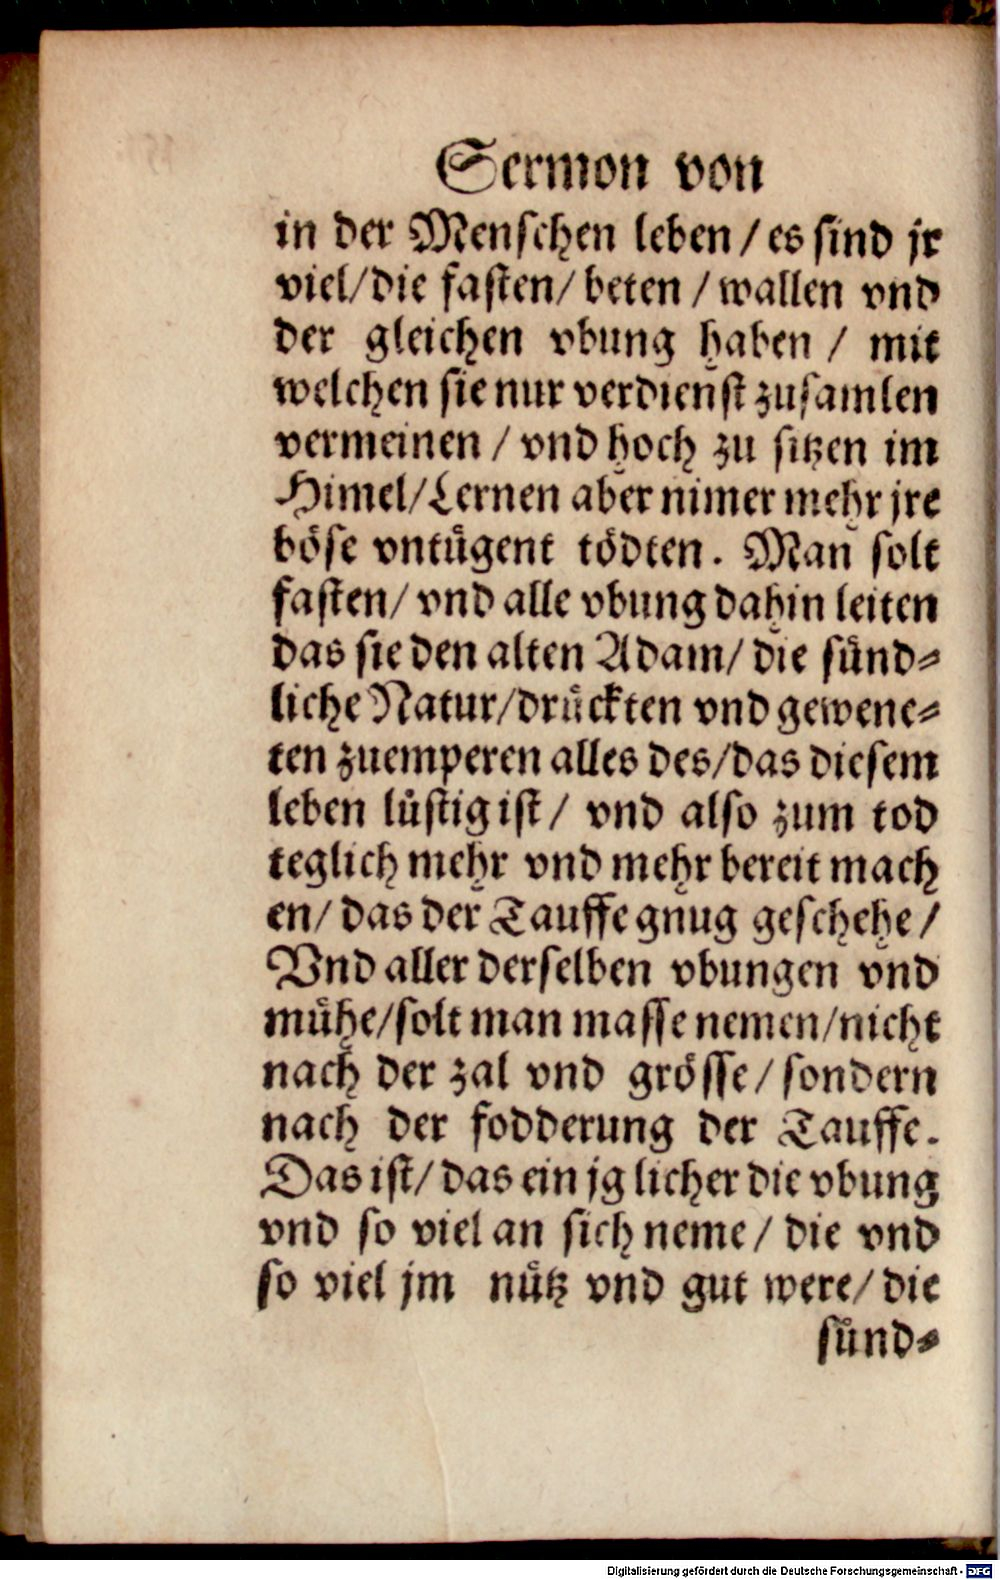 Sermon von
in der Menschen leben / es sind jr
viel/ die fasten/ beten / wallen vnd
der gleichen vbung haben / mit
welchen sie nur verdienst zusamlen
vermeinen / vnd hoch zu sitzen im
Himel/ Lernen aber nimer mehr jre
böse vntügent tödten. Man solt
fasten/ vnd alle vbung dahin leiten
das sie den alten Adam/ die sünd⸗
liche Natur/ drückten vnd gewene⸗
ten zuemperen alles des/ das diesem
leben lüstig ist/ vnd also zum tod
teglich mehr vnd mehr bereit mach
en/ das der Tauffe gnug geschehe /
Vnd aller derselben vbungen vnd
mühe/ solt man masse nemen/ nicht
nach der zal vnd grösse/ sondern
nach der fodderung der Tauffe.
Das ist/ das ein jg licher die vbung
vnd so viel an sich neme/ die vnd
so viel jm nütz vnd gut were/ die
sünd⸗
Digitalisierung gefördert durch die Deutsche Forschungsgemeinschaft - DFG